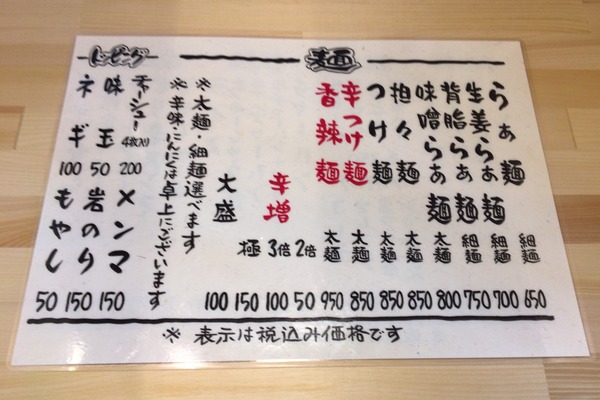 麺
らぁ麺 細麺 650
生姜らぁ麺 細麺 700
背脂らぁ麺 細麺 750
味噌らぁ麺 太麺 800
担々麺 太麺 850
つけ麺 太麺 850
辛つけ麺 太麺 850
香辣麺 太麺 950
辛増 2倍 50
3倍 100
極 150
大盛 100
※太麺・細麺選べます
※辛味・にんにくは卓上にございます
トッピング
チャーシュー4枚入り 200
味玉 50
ネギ 100
メンマ 150
岩のり 150
もやし 50
※ 表示は税込み価格です